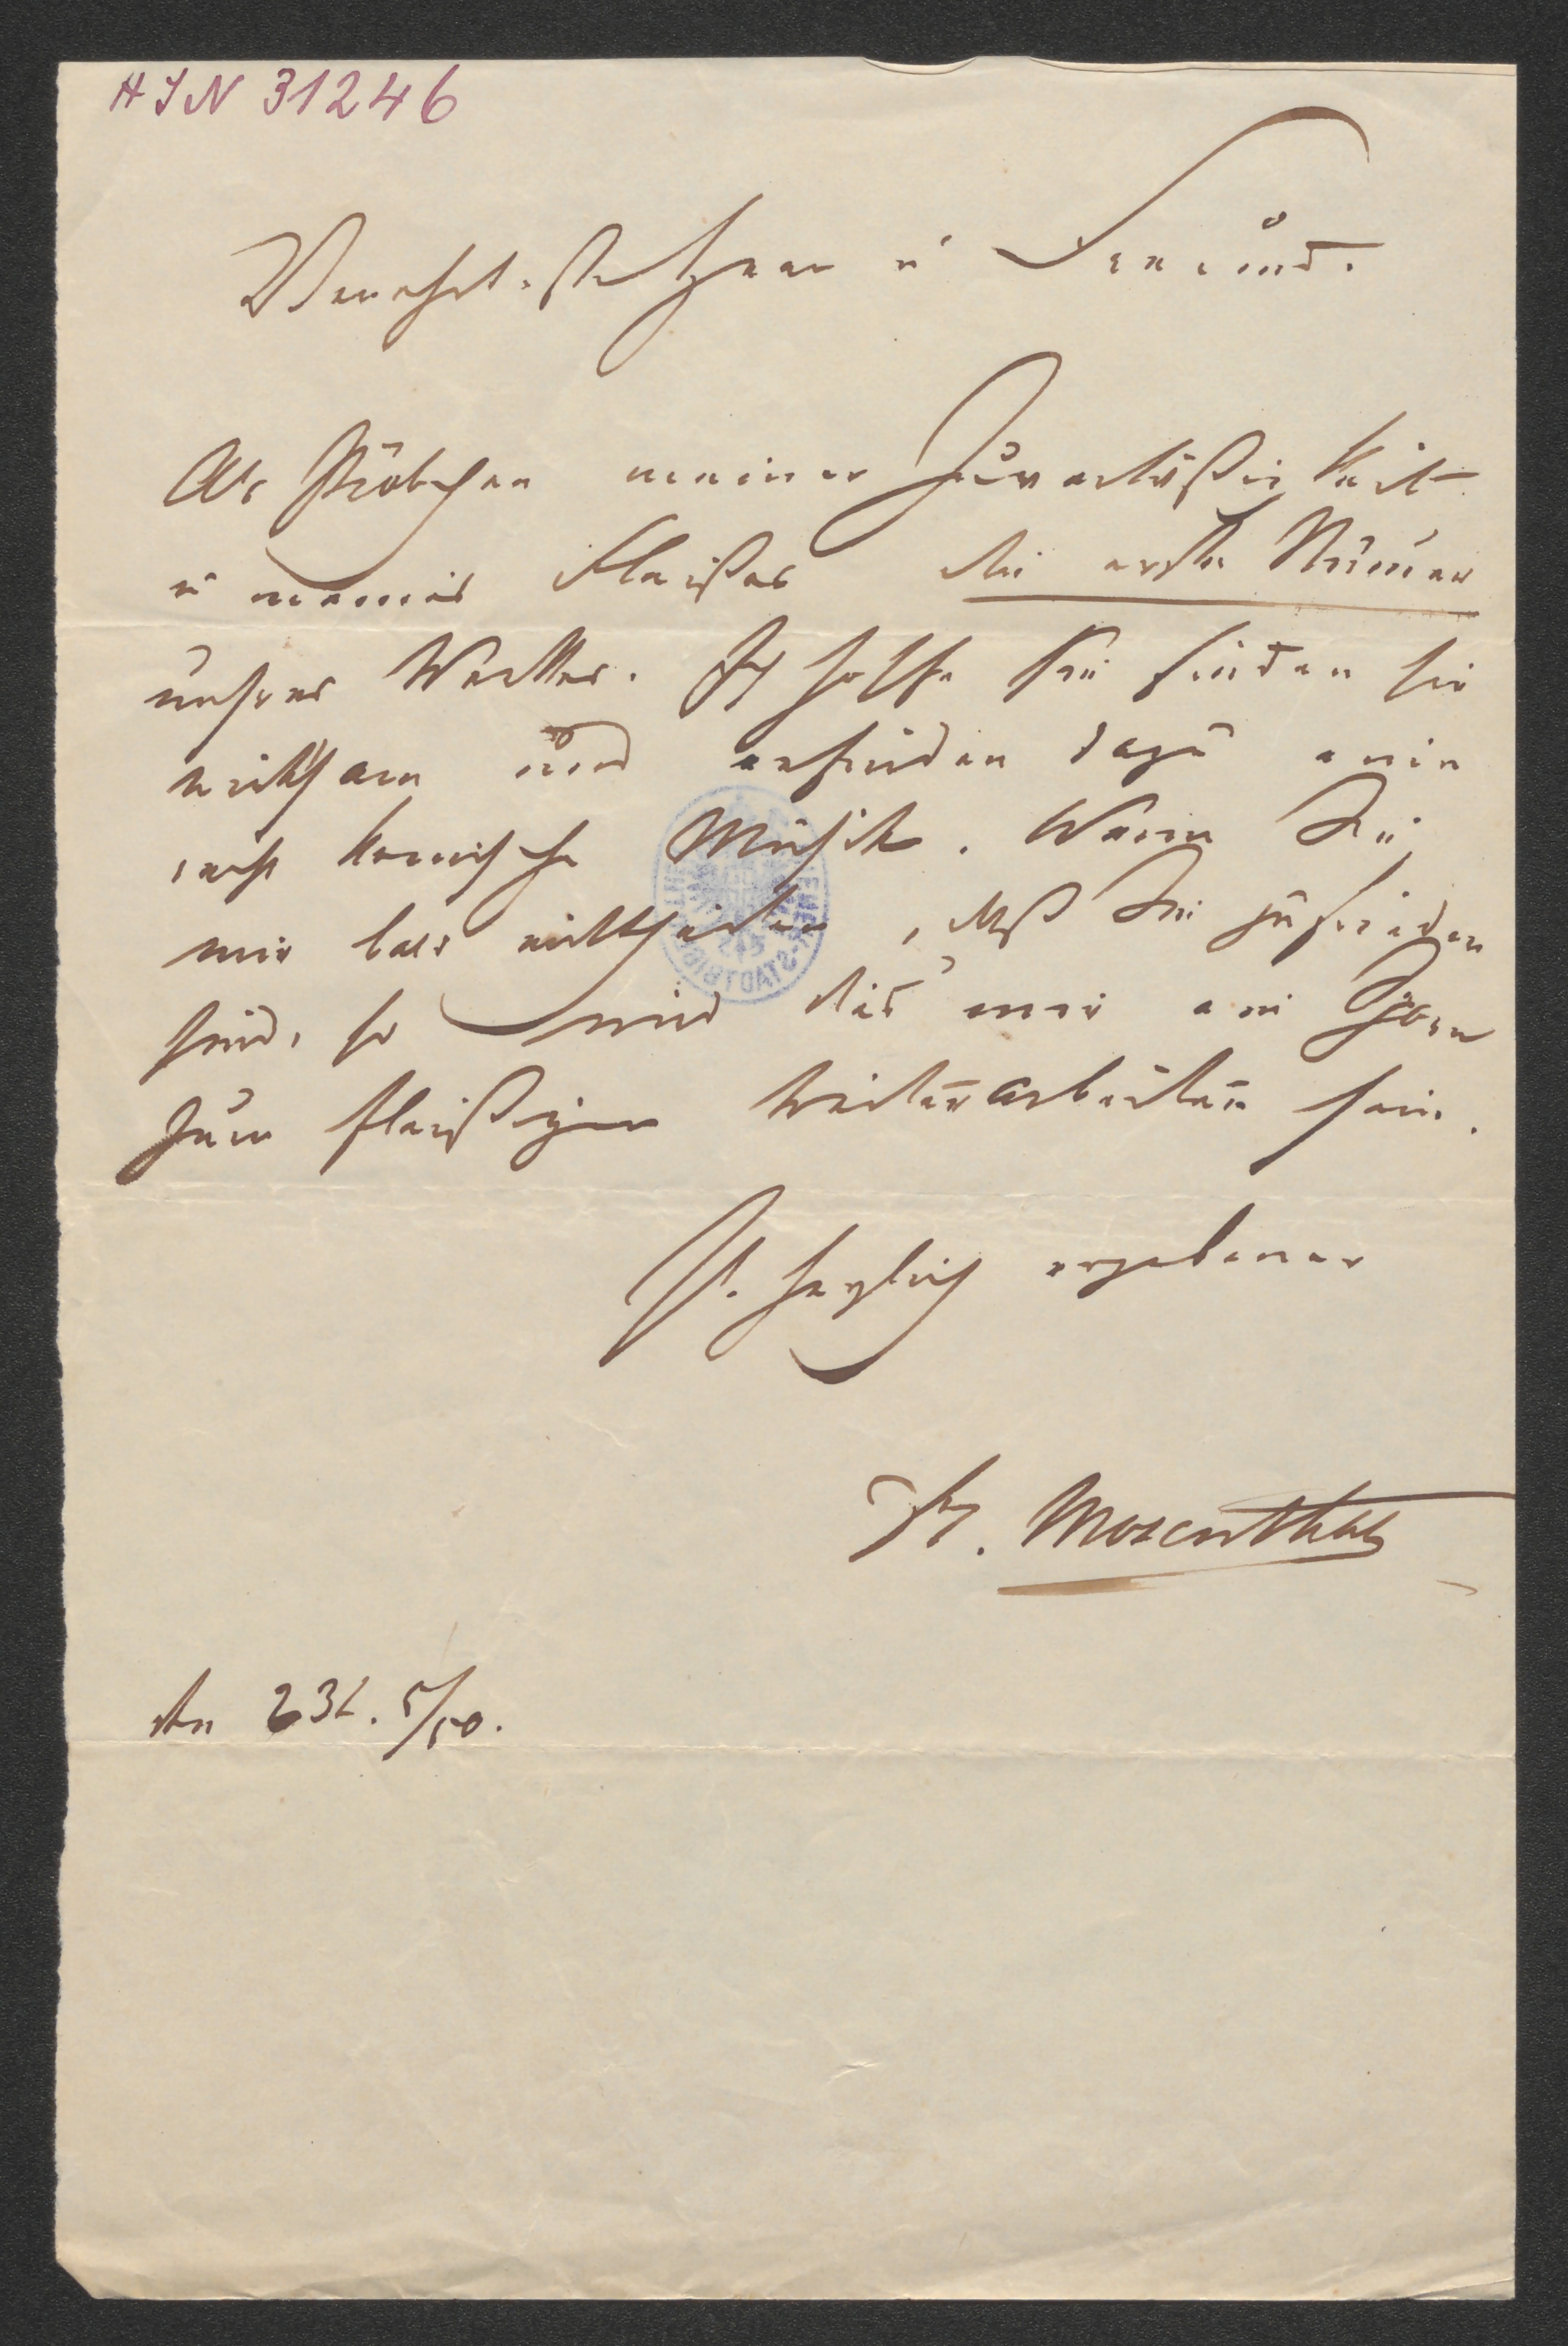 HIN 31246
Verehrtester Herr u Freund.
Als Pröbchen meiner Zuverläßigkeit
u meines Fleißes die erste Numer
unsres Werkes. Ich hoffe Sie finden sie
wirksam und erfinden dazu eine
recht komische Musik. Wenn Sie
mir bald mittheilen, daß Sie zufrieden
sind, so wird dies mir ein Sporn
zum fleißigen Weiterarbeiten sein.
Ihr herzlich ergebener
Mosenthal
den 23t. 5/50.